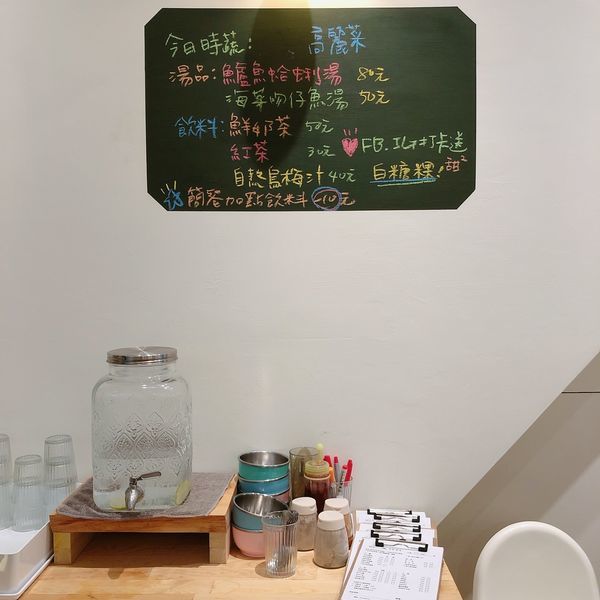 今日時蔬: 高麗菜
湯品:鱸魚蛤蜊湯 80元
海菜吻仔魚湯 50元
飲料:鮮奶茶 50元
紅茶 30元 FB.IG打卡送
自熬烏梅汁 40元 白糖粿! 甜²
簡餐加點飲料 -10元